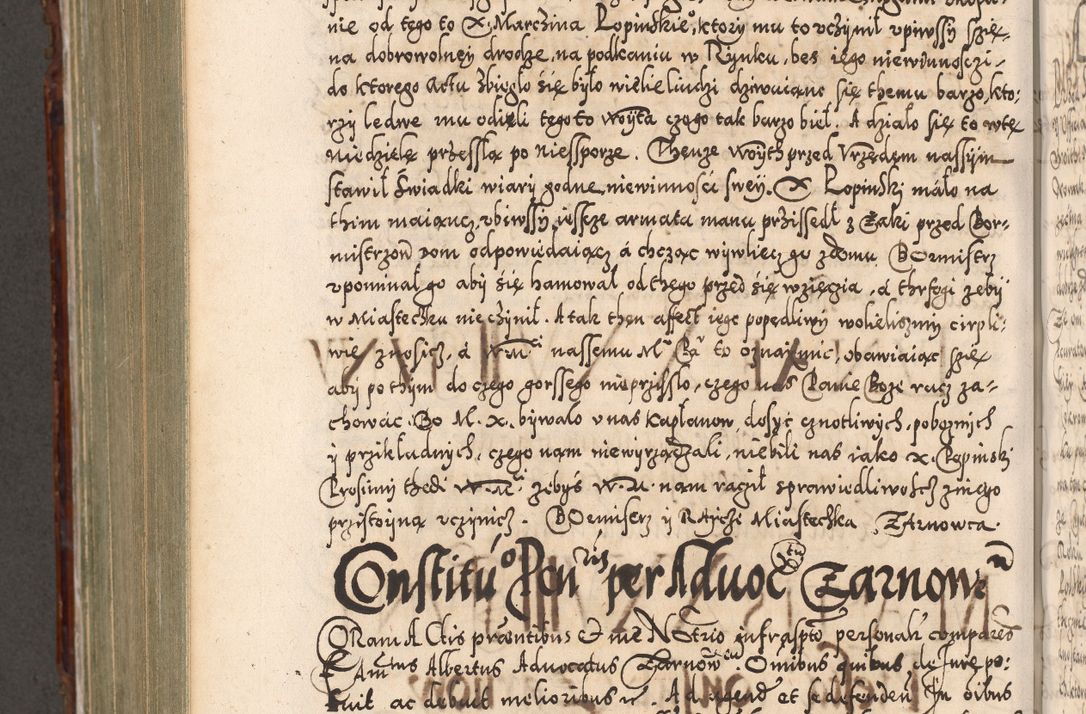 nie od tego to X. Marczina Lopinskie°, ktorzy mu to vczÿnił vpiwssy szię=
na dobrowolney drodze, na podkaniu w Rÿnku, bes iego niewinnosczi =
do ktorego Actu zbiegło się było wiele liudzi dziwuiąnc się themu barzo, kto:
rzy ledwe mu odięli tego to woÿta czego tak barzo bieł. A działo się to wtę
niedzielę przessłą po niessporze. Thenze woÿth przed Vrzędem nassÿm
stawił świadki wiarÿ godne, niewinnosci sweÿ. X Lopinski mało na
thim maiąncz, vbiwssÿ iessze armata manu przissedł z Żaki przed Bor=
mistrzow dom odpowiedaiącz á chcząc wÿwliecz go z domu. BOrmistrz
vpominał go abÿ się hamował od thego przed się wzięczia, á thrsogi zebÿ
w Miasteczku nie czÿnił. A tak then affect iego popędliwÿ wolieliszmÿ cirpli=
wie znosicz, á nassemu M. to oznaÿmic, obawiaiąc szię
abÿ pothÿm do czego gorssego nie przÿssło, czego nas Panie Boze racz za=
chowac. Bo M. X. bÿwało v nas kapłanow, dosÿc cznotliwÿch, poboznÿch
ÿ przikładnÿch, czego nam niewÿrządzali, niebili nas iako X. Łapinski
Prosimÿ thedi zebÿs W. M. nam racził sprawiedliwoscz z niego
przistoÿną vczÿnicz. BOrmisrz ÿ RAÿczÿ Miasteczka ZArnowca.
Constitu° Pcu ris per Aduoc tu Zarnow
CORam Actis præntibus Et me NOtrio infraspto personalr compares
FAmtus Albertus Aduocatus Zarnow. Omibus quibus de Iure po:
tuit ac debuit melioribus Ad agend et se defenden In oibus